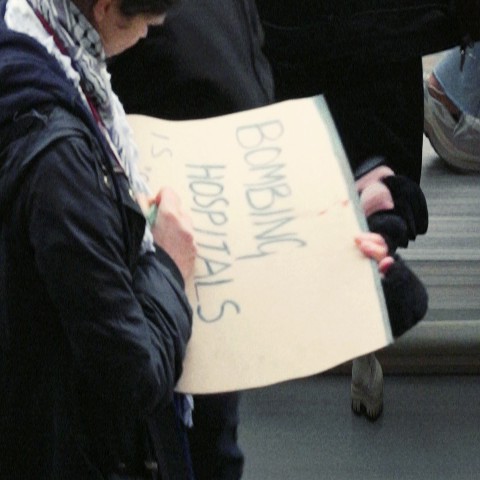 BOMBING
HOSPITALS
IS